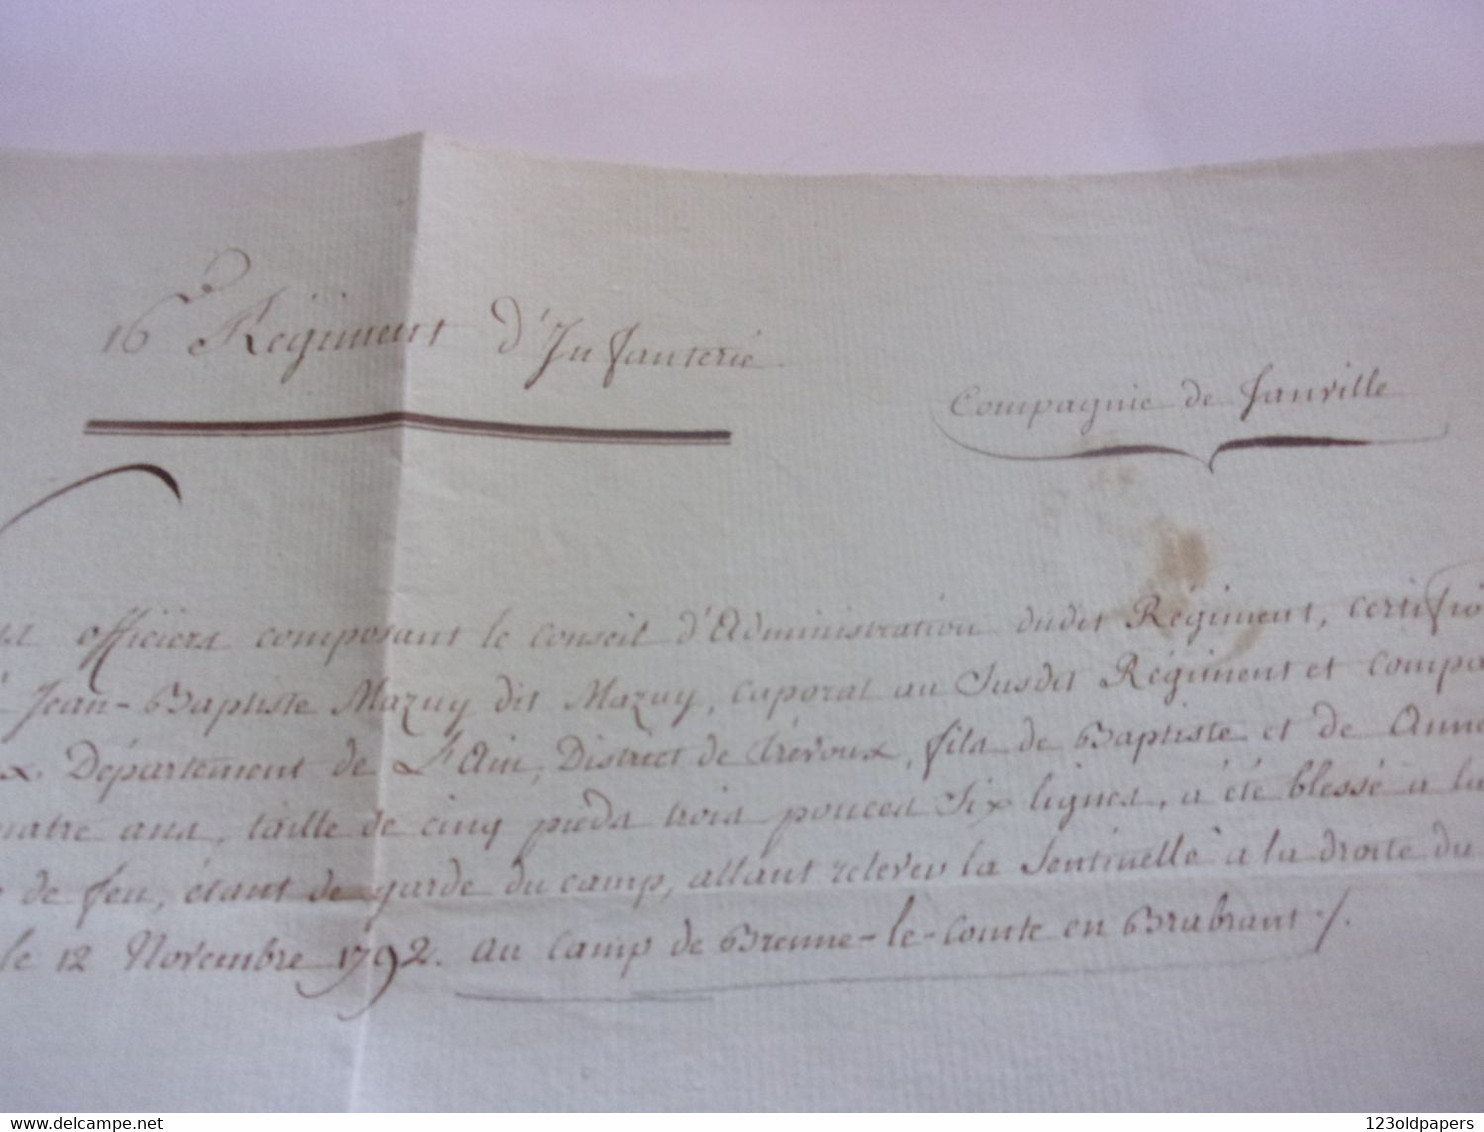 16e Régiment d'Infanterie
Compagnie de Janville
officiers composant le conseil d'Administration dudit Régiment, certifio
Jean-Baptiste Mazuy dit Mazuy, caporal au Susdit Régiment et compa
x. Département de L'Ain, District de Trévoux, fils de Baptiste et de Anne
uatre ans, taille de cinq pieds trois pouces Six lignes, a été blessé a la
de feu, étant de garde du camp, allant relever la Sentinelle a la droite du
le 12 Novembre 1792. au camp de Brenne-le-comte en Brabrant ./.
delcampe.net
123oldpapers